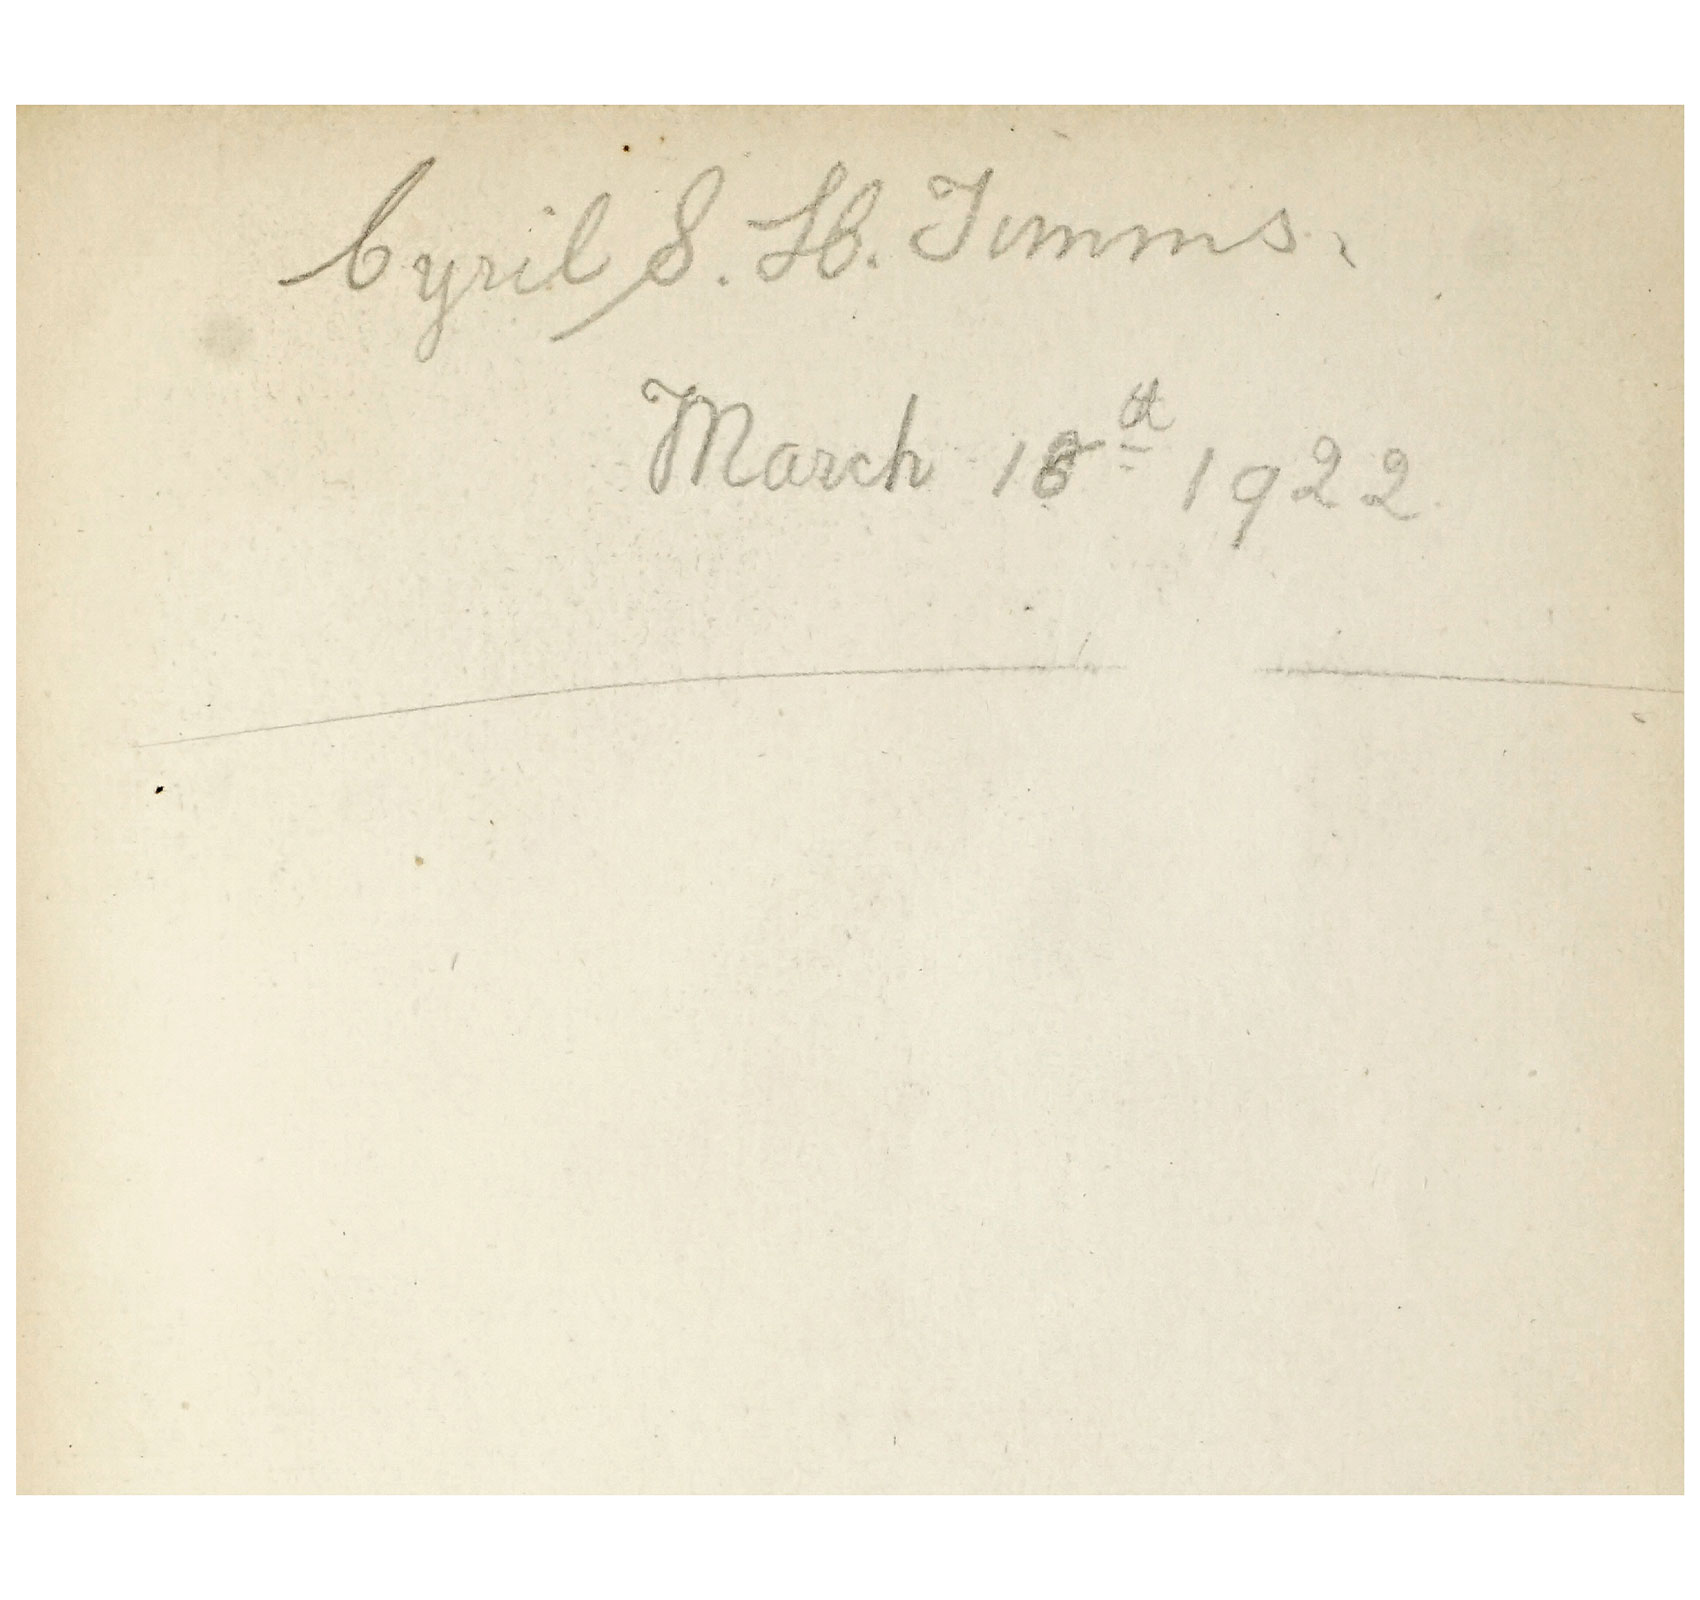 Cyril S. H. Timms.
March 18th 1922